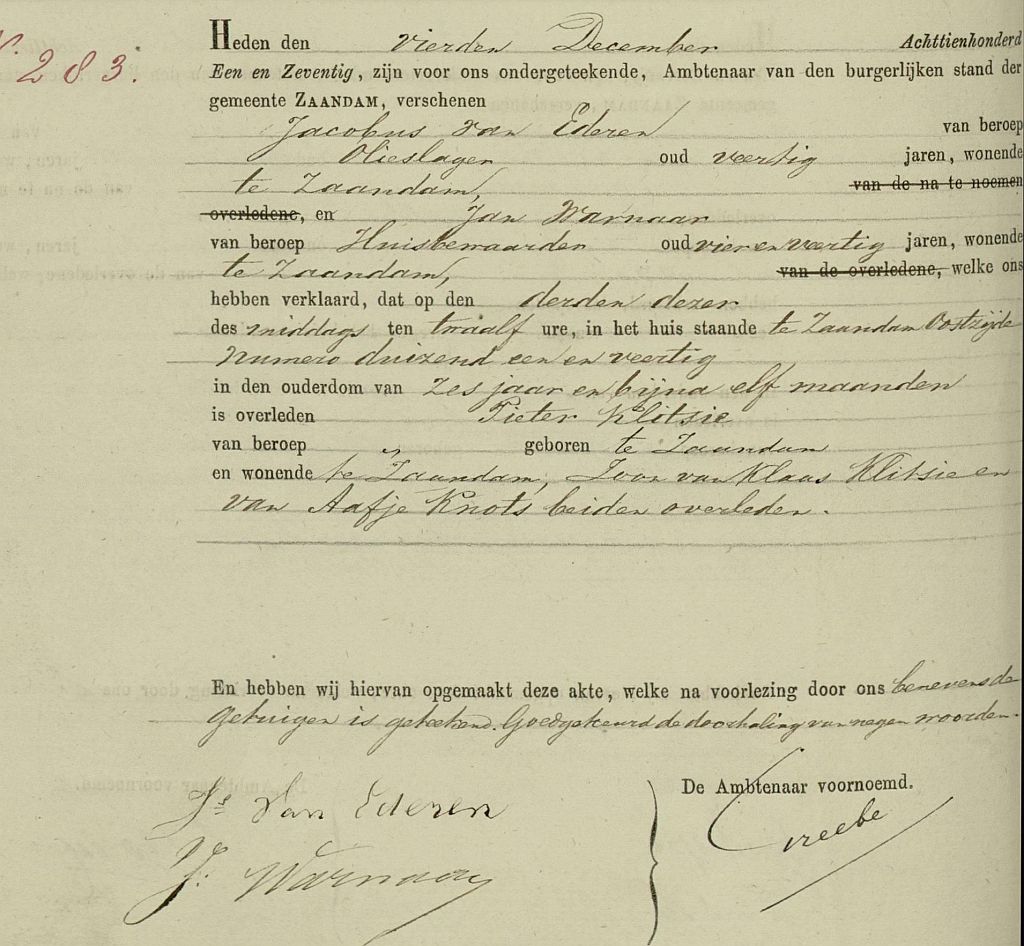 N. 283.
Heden den vierden December Achttienhonderd
Een en Zeventig, zijn voor ons ondergeteekende, Ambtenaar van den burgerlijken stand der
gemeente ZAANDAM, verschenen
Jacobus van Ederen van beroep
Olieslager oud veertig jaren, wonende
te Zaandam, van de na te noemen
overledene, en Jan Warnaar
van beroep Huisbewaarder oud vier en veertig jaren, wonende
te Zaandam, van de overledene, welke ons
hebben verklaard, dat op den derden dezer
des middags ten twaalf ure, in het huis staande te Zaandam Oostzijde
numero duizend een en veertig
in den ouderdom van zes jaar en bijna elf maanden
is overleden Pieter Klitsie
van beroep geboren te Zaandam
en wonende te Zaandam, Zoon van Klaas Klitsie en
van Aafje Knots beiden overleden.
En hebben wij hiervan opgemaakt deze akte, welke na voorlezing door ons benevens de
getuigen is geteekend. Goedgekeurd de doorhaling van negen woorden.
De Ambtenaar voornoemd.
Js Van Ederen
J. Warnaar